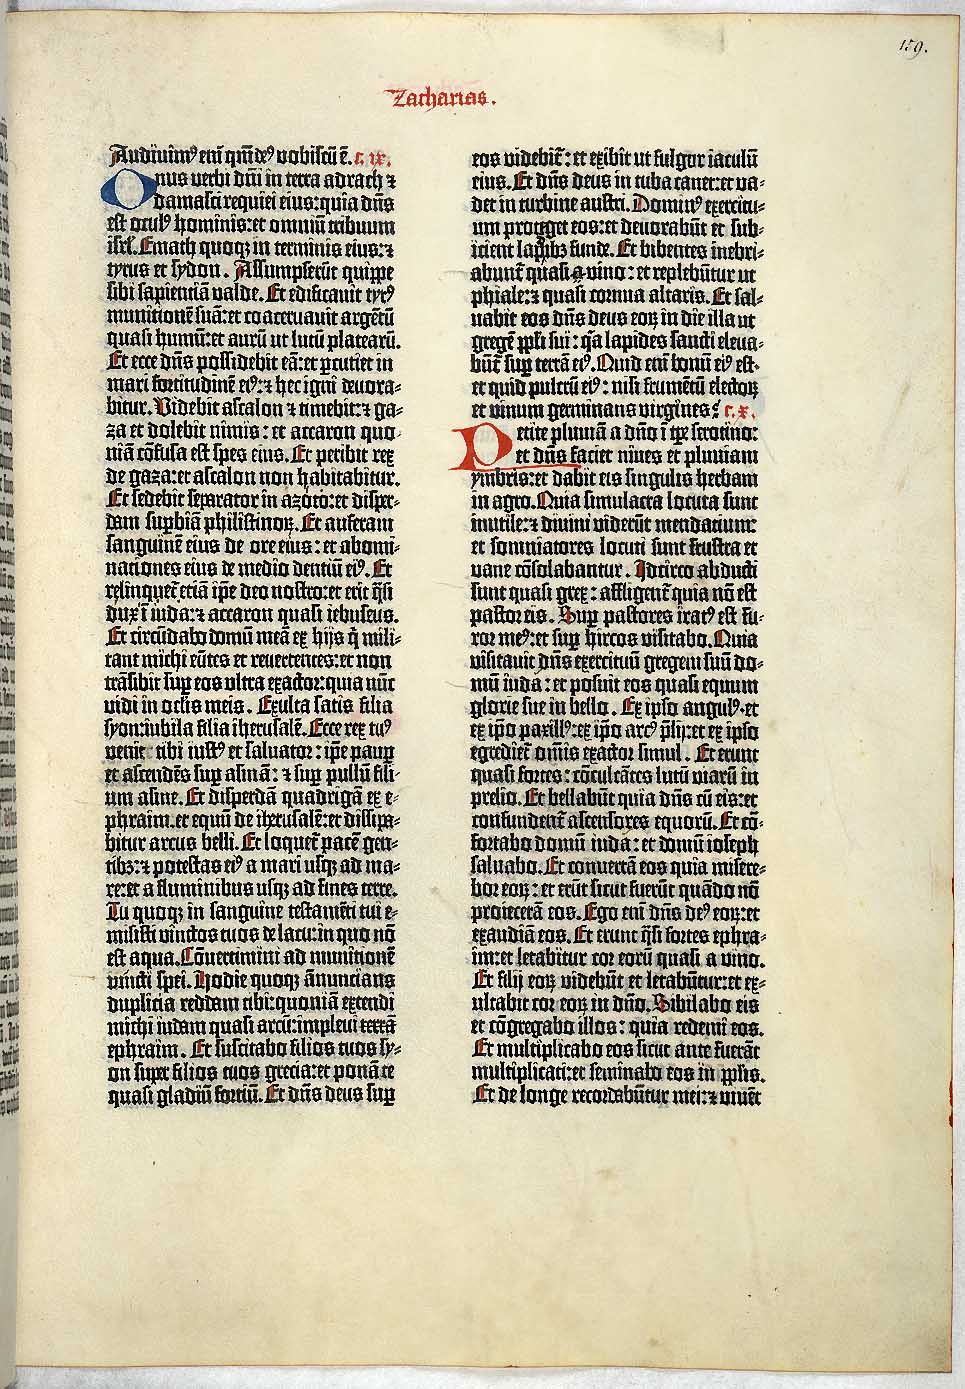 159.
Zacharias.
Audiuimꝰ eni̅ qm̅ deꝰ vobiscu̅ e̅. c. ix.
Onus verbi dn̅i in terra adrach ⁊
damasci requiei eius: quia dn̅s
est oculꝰ hominis: et omniu̅ tribuum
isrl̅. Emath quoqꝫ in terminis eius: ⁊
tyrus et sydon. Assumpseru̅t quippe
sibi sapientia̅ valde. Et edificauit tyrꝰ
munitione̅ sua̅: et coaceruauit argentu̅
quasi humu̅: et auru̅ ut lutu̅ plateaꝝ.
Et ecce dn̅s possidebit ea̅: et ꝑcutiet in
mari fortitudine̅ eiꝰ: ⁊ hec igni deuora-
bitur. Videbit ascalon ⁊ timebit: ⁊ ga-
za et dolebit nimis: et accaron quo-
nia̅ co̅fusa est spes eius. Et peribit rex
de gaza: et ascalon non habitabitur.
Et sedebit seꝑator in azoto: et disper-
dam suꝑbia̅ philistinoꝝ. Et auferam
sanguine̅ eius de ore eius: et abomi-
nationes eius de medio dentiu̅ eiꝰ. Et
relinquet̅ etia̅ ip̅e deo nostro: et erit q̅si
dux i̅ iuda: ⁊ accaron quasi iebuseus.
Et circu̅dabo domu̅ mea̅ ex hijs q̅ mili-
tant michi eu̅tes et reuertentes: et non
tra̅sibit suꝑ eos vltra exactor: quia nu̅c
vidi in oculis meis. Exulta satis filia
syon: iubila filia iherusale̅. Ecce rex tuꝰ
veniet tibi iustꝰ et saluator: ip̅e pauꝑ
et ascende̅s suꝑ asina̅: ⁊ suꝑ pullu̅ fili-
um asine. Et disperda̅ quadriga̅ ex e-
phraim. et equu̅ de iherusale̅: et dissipa-
bitur arcus belli. Et loquet̅ pace̅ gen-
tibꝫ: ⁊ potestas eiꝰ a mari usqꝫ ad ma-
re: et a fluminibus usqꝫ ad fines terre.
Tu quoqꝫ in sanguine testame̅ti tui e-
misisti vinctos tuos de lacu: in quo no̅
est aqua. Co̅uertimini ad munitione̅
vincti spei. Hodie quoqꝫ a̅nuncians
duplicia reddam tibi: quonia̅ extendi
michi iudam quasi arcu̅: impleui terra̅
ephraim. Et suscitabo filios tuos sy-
on super filios tuos grecia: et pona̅ te
quasi gladiu̅ fortiu̅. Et dn̅s deus suꝑ
eos videbit̅: et exibit ut fulgur iaculu̅
eius. Et dn̅s deus in tuba canet: et va-
det in turbine austri. Dominꝰ exercitu-
um proteget eos: et deuorabu̅t et sub-
icient lapidibꝫ funde. Et bibentes inebri-
abunt̅ quasi a vino: et replebu̅tur ut
phiale: ⁊ quasi cornua altaris. Et sal-
uabit eos dn̅s deus eoꝝ in die illa ut
grege̅ ppl̅i sui: q̅a lapides sancti eleua-
bu̅t̅ suꝑ terra̅ eiꝰ. Quid eni̅ bonu̅ eiꝰ est.
et quid pulcru̅ eiꝰ: nisi frumentu̅ electoꝝ
et vinum germinans virgines? c. x.
Petite pluuia̅ a dn̅o i̅ tꝑe serotino:
et dn̅s faciet niues et pluuiam
ymbris: et dabit eis singulis herbam
in agro. Quia simulacra locuta sunt
inutile: ⁊ diuini videru̅t mendacium:
et somniatores locuti sunt frustra et
vane co̅solabantur. Idcirco abducti
sunt quasi grex: affligent̅ quia no̅ est
pastor eis. Suꝑ pastores iratꝰ est fu-
ror meꝰ: et suꝑ hircos visitabo. Quia
visitauit dn̅s exercituu̅ gregem suu̅ do-
mu̅ iuda: et posuit eos quasi equum
glorie sue in bello. Ex ipso angulꝰ. et
ex ip̅o paxillꝰ: ex ip̅o arcꝰ p̅lij: et ex ipso
egrediet̅ om̅is exactor simul. Et erunt
quasi fortes: co̅culca̅tes lutu̅ viaru̅ in
prelio. Et bellabu̅t quia dn̅s cu̅ eis: et
confundent̅ ascensores equoru̅. Et co̅-
fortabo domu̅ iuda: et domu̅ ioseph
saluabo. Et conuerta̅ eos quia misere-
bor eoꝝ: et eru̅t sicut fueru̅t qua̅do no̅
proiecera̅ eos. Ego eni̅ dn̅s deꝰ eoꝝ: et
exaudia̅ eos. Et erunt q̅si fortes ephra-
im: et letabitur cor eoru̅ quasi a vino.
Et filij eoꝝ videbu̅t et letabu̅tur: et ex-
ultabit cor eoꝝ in dn̅o. Sibilabo eis
et co̅gregabo illos: quia redemi eos.
Et multiplicabo eos sicut ante fuera̅t
multiplicati: et seminabo eos in ppl̅is.
Et de longe recordabu̅tur mei: ⁊ viue̅t